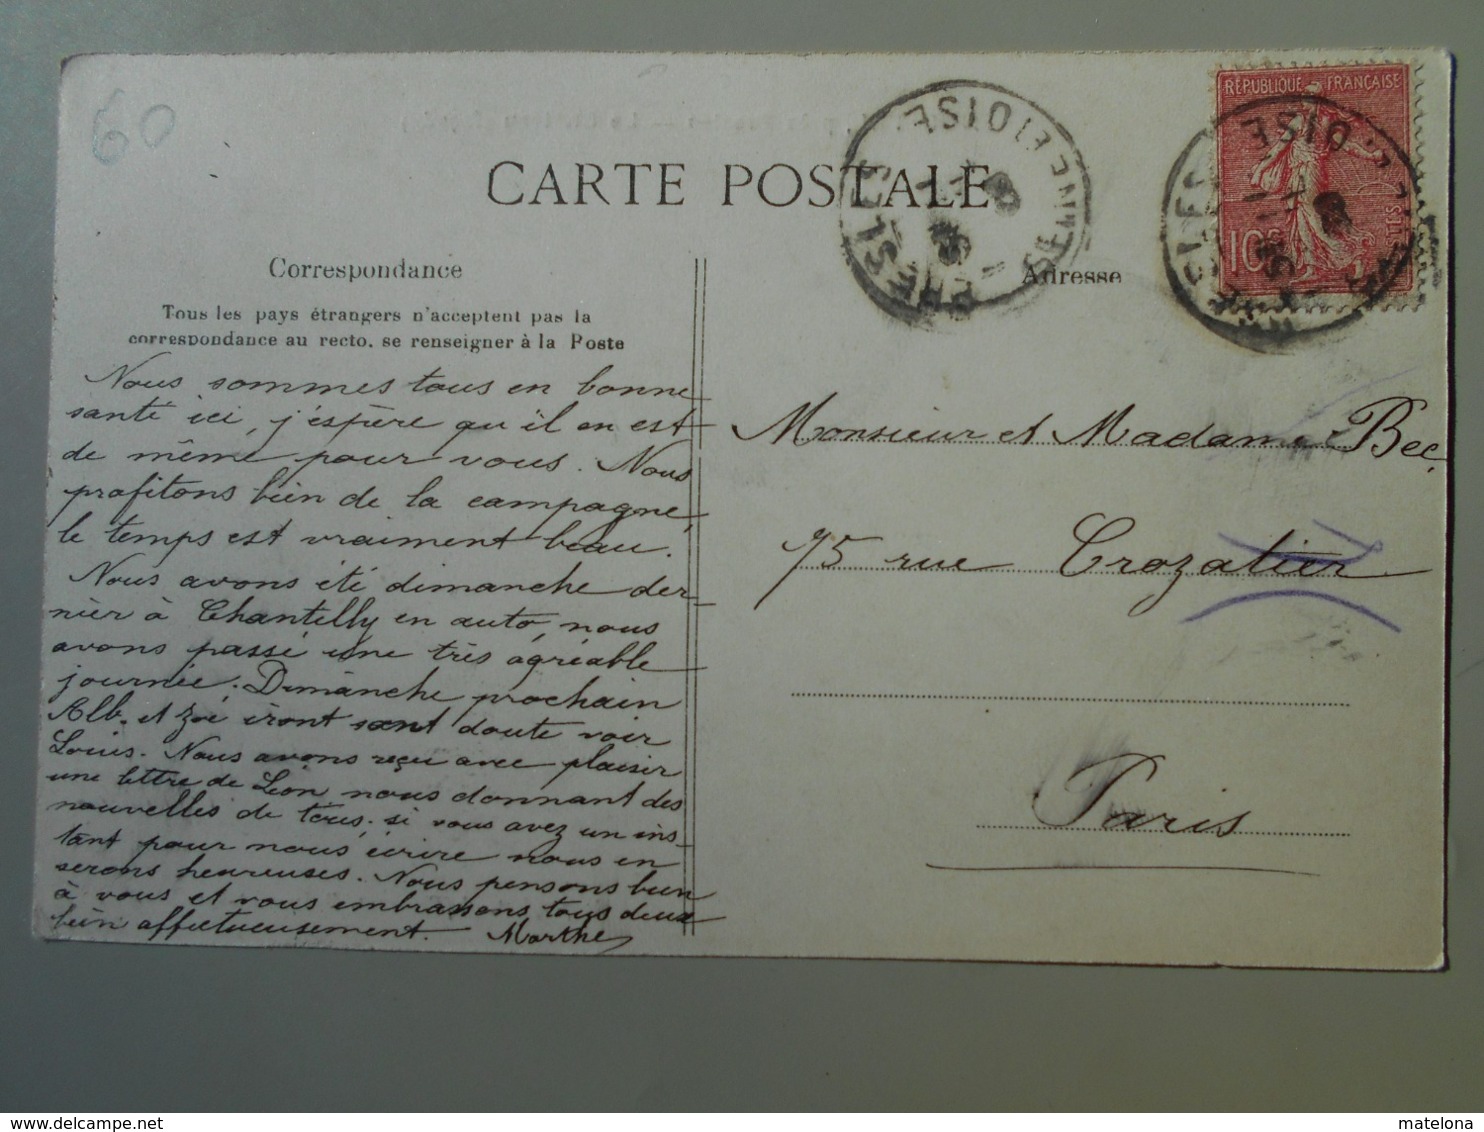 60
RÉPUBLIQUE FRANÇAISE
10c
PRESLES
SEINE ET OISE
OISE
CARTE POSTALE
Correspondance
Adresse
Tous les pays étrangers n'acceptent pas la
correspondance au recto. se renseigner à la Poste
Nous sommes tous en bonne
santé ici, j'espère qu'il en est
de même pour vous. Nous
profitons bien de la campagne,
le temps est vraiment beau.
Nous avons été dimanche der-
nier à Chantilly en auto, nous
avons passé une très agréable
journée. Dimanche prochain
Alb. et Zoé iront sant doute voir
Louis. Nous avons reçu avec plaisir
une lettre de Léon nous donnant des
nouvelles de tous. si vous avez un ins-
tant pour nous écrire nous en
serons heureuses. Nous pensons bien
à vous et vous embrassons tous deux
bien affectueusement. Marthe
Monsieur et Madame Bec.
75 rue Crozatier
Paris
delcampe.net
matelona